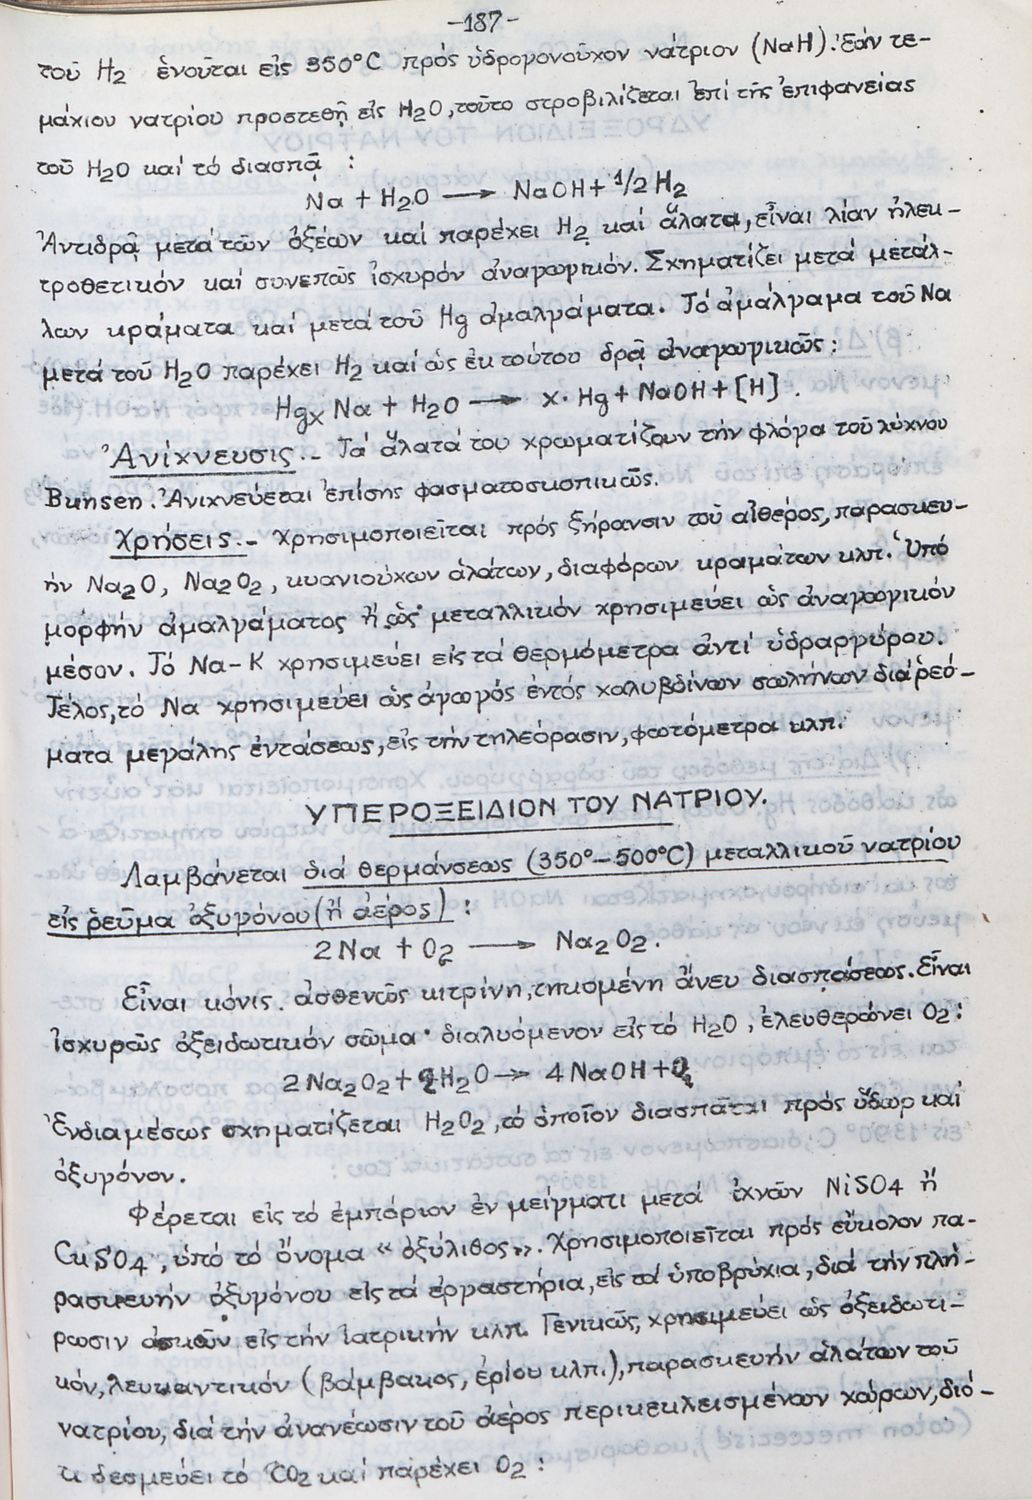 -187-
τοῦ H2 ἑνοῦται εἰς 350°C πρός ὑδρογονοῦχον νάτριον (NaH). Ἐάν τε-
μάχιον νατρίου προστεθῇ εἰς H2O, τοῦτο στροβιλίζεται ἐπί τῆς ἐπιφανείας
τοῦ H2O καί τό διασπᾷ :
Na + H2O → NaOH + 1/2 H2
Ἀντιδρᾷ μετά τῶν ὀξέων καί παρέχει H2 καί ἅλατα, εἶναι λίαν ἠλεκ-
τροθετικόν καί συνεπῶς ἰσχυρόν ἀναγωγικόν. Σχηματίζει μετά μετάλ-
λων κράματα καί μετά τοῦ Hg ἀμαλγάματα. Τό ἀμάλγαμα τοῦ Na
μετά τοῦ H2O παρέχει H2 καί ὡς ἐκ τούτου δρᾷ ἀναγωγικῶς:
Hgx Na + H2O → x. Hg + NaOH + [H] .
Ἀνίχνευσις.- Τά ἅλατά του χρωματίζουν τήν φλόγα τοῦ λύχνου
Bunsen. Ἀνιχνεύεται ἐπίσης φασματοσκοπικῶς.
Χρήσεις.- Χρησιμοποιεῖται πρός ξήρανσιν τοῦ αἰθέρος, παρασκευ-
ήν Na2O, Na2O2, κυανιούχων ἁλάτων, διαφόρων κραμάτων κλπ. Ὑπό
μορφήν ἀμαλγάματος ἤ ὡς μεταλλικόν χρησιμεύει ὡς ἀναγωγικόν
μέσον. Τό Na-K χρησιμεύει εἰς τά θερμόμετρα ἀντί ὑδραργύρου.
Τέλος, τό Na χρησιμεύει ὡς ἀγωγός ἐντός χαλυβδίνων σωλήνων διά ῥεύ-
ματα μεγάλης ἐντάσεως, εἰς τήν τηλεόρασιν, φωτόμετρα κλπ.
ΥΠΕΡΟΞΕΙΔΙΟΝ ΤΟΥ ΝΑΤΡΙΟΥ.
Λαμβάνεται διά θερμάνσεως (350°-500°C) μεταλλικοῦ νατρίου
εἰς ῥεῦμα ὀξυγόνου (ἤ ἀέρος) :
2Na + O2 → Na2O2.
Εἶναι κόνις ἀσθενῶς κιτρίνη, τηκομένη ἄνευ διασπάσεως. Εἶναι
ἰσχυρῶς ὀξειδωτικόν σῶμα· διαλυόμενον εἰς τό H2O, ἐλευθερώνει O2:
2Na2O2 + 2H2O → 4NaOH + O2
Ἐνδιαμέσως σχηματίζεται H2O2, τό ὁποῖον διασπᾶται πρός ὕδωρ καί
ὀξυγόνον.
Φέρεται εἰς τό ἐμπόριον ἐν μείγματι μετά ἰχνῶν NiSO4 ἤ
CuSO4, ὑπό τό ὄνομα «ὀξύλιθος». Χρησιμοποιεῖται πρός εὔκολον πα-
ρασκευήν ὀξυγόνου εἰς τά ἐργαστήρια, εἰς τά ὑποβρύχια, διά τήν πλή-
ρωσιν ἀσκῶν εἰς τήν Ἰατρικήν κλπ. Γενικῶς, χρησιμεύει ὡς ὀξειδωτι-
κόν, λευκαντικόν (βάμβακος, ἐρίου κλπ.), παρασκευήν ἁλάτων τοῦ
νατρίου, διά τήν ἀνανέωσιν τοῦ ἀέρος περικεκλεισμένων χώρων, διό-
τι δεσμεύει τό CO2 καί παρέχει O2 :